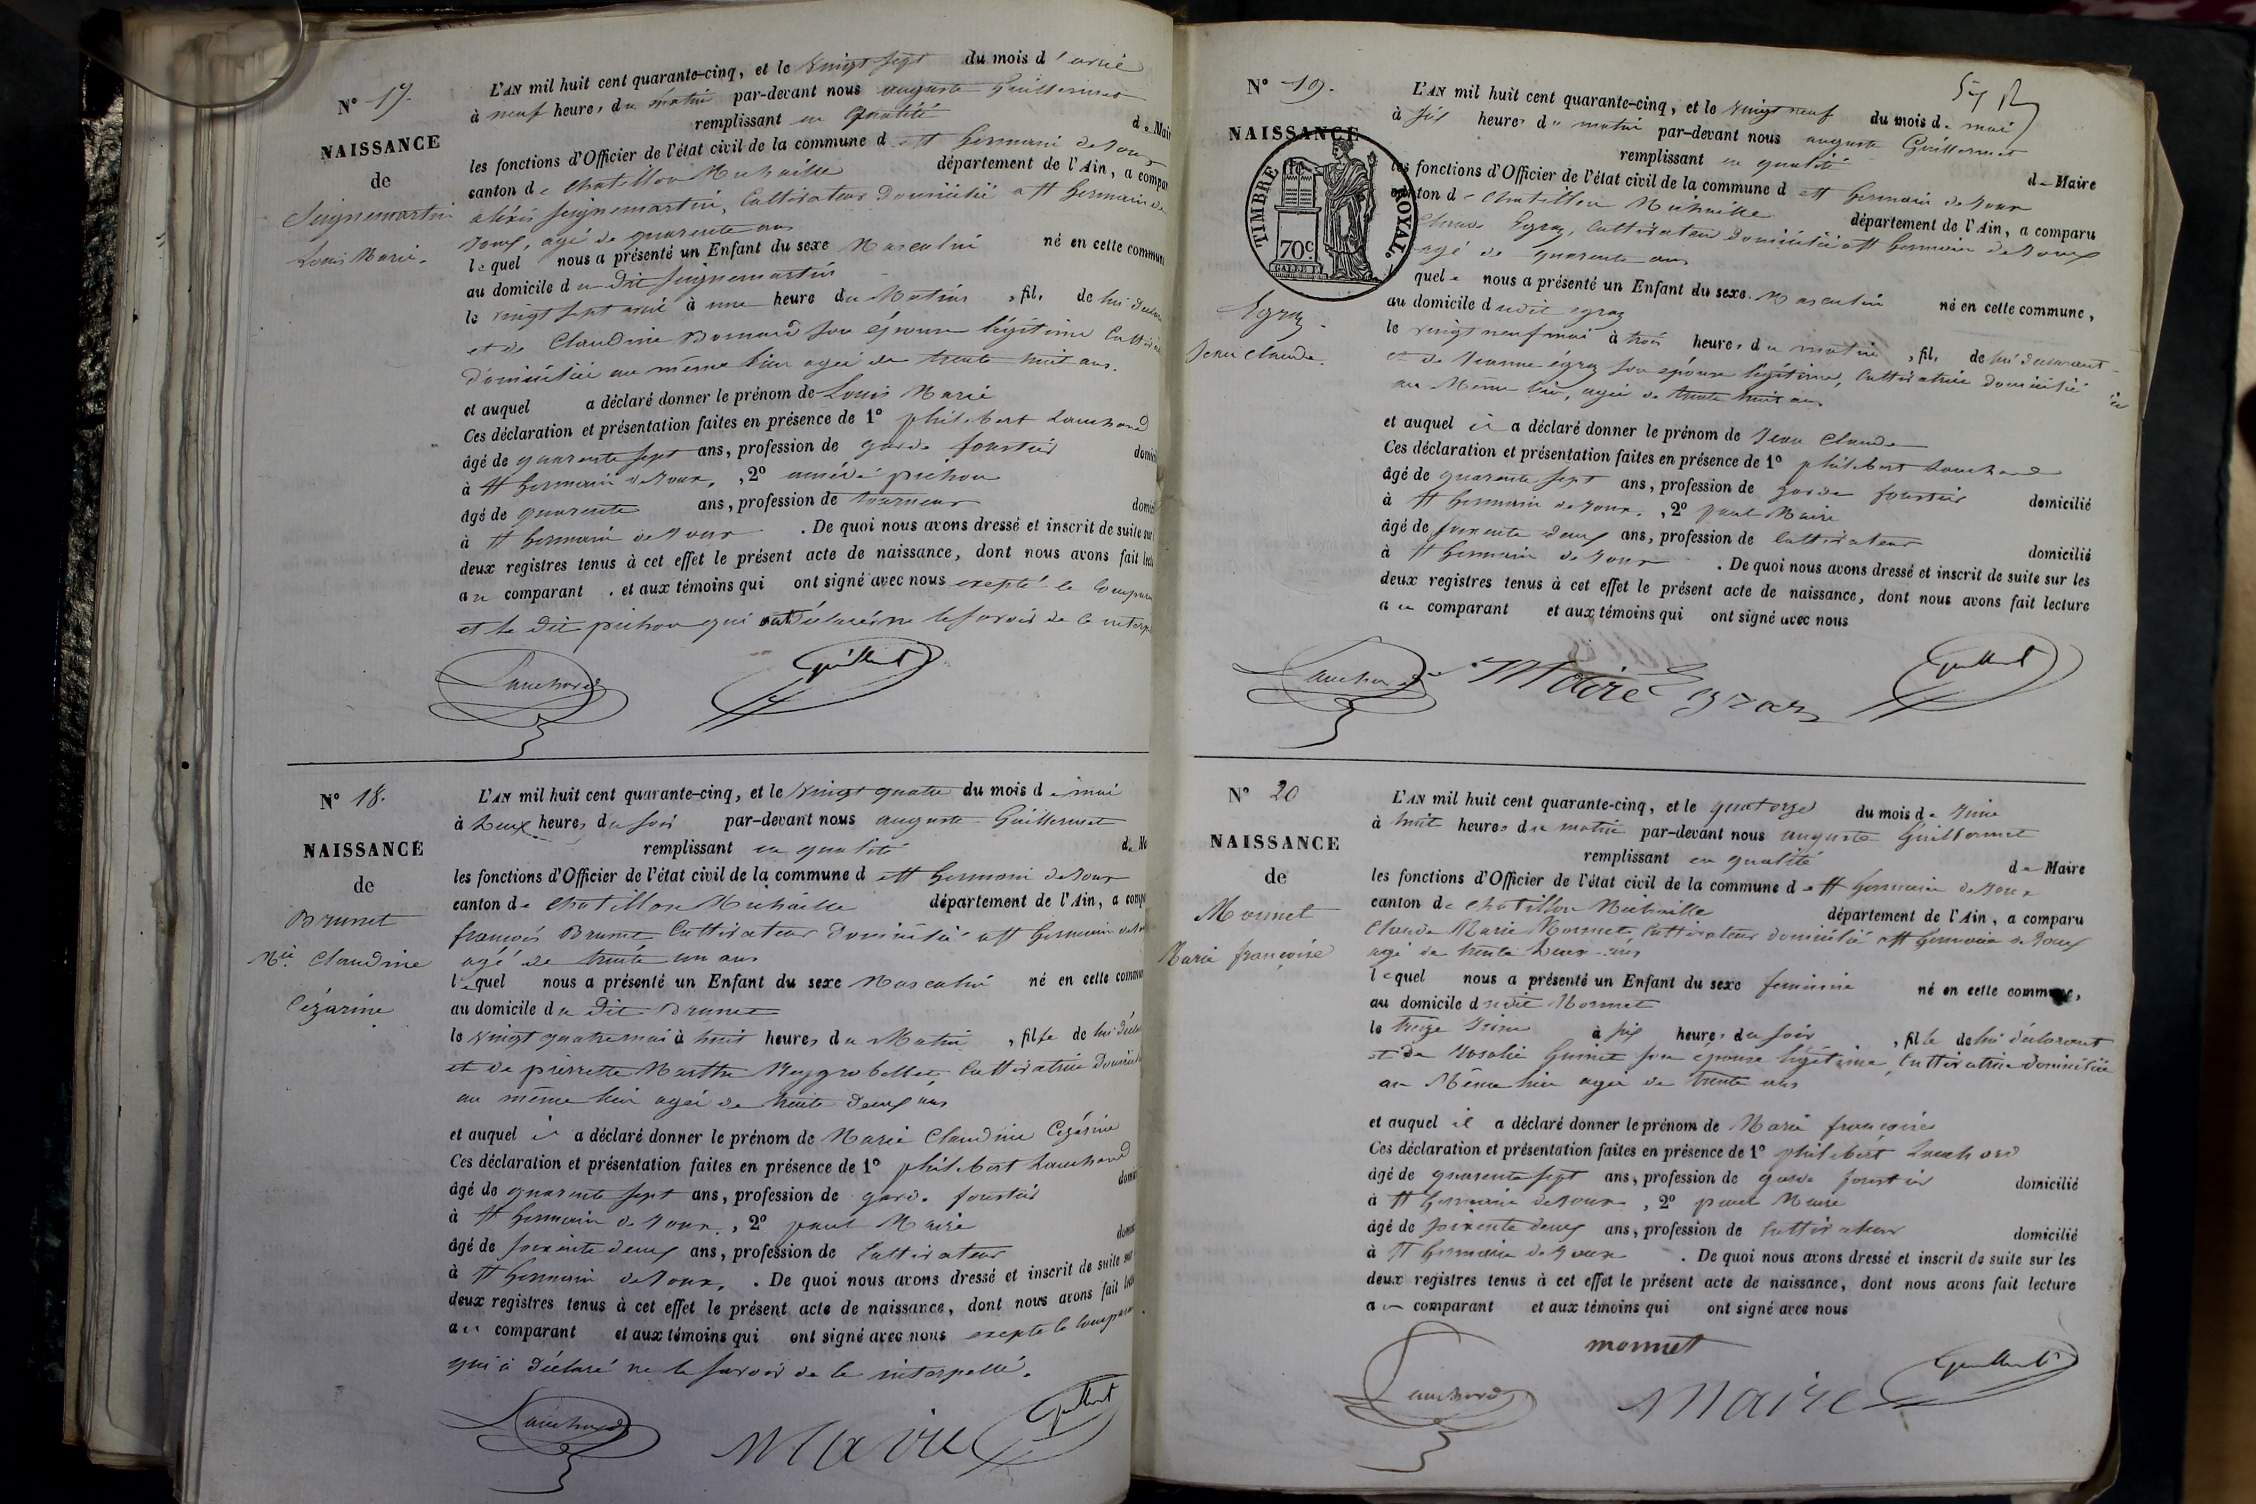 N° 17.
NAISSANCE
de
Seignemartin
Louis Marie.
L'AN mil huit cent quarante-cinq, et le vingt sept du mois d'avril
à neuf heures du matin par-devant nous auguste Guillermet
remplissant en qualité de Mair
les fonctions d'Officier de l'état civil de la commune de St Germain de Joux
canton de Chatillon Michaille département de l'Ain, a compar
aléxis Seignemartin, Cultivateur Domicilié a St Germain de
Joux, agé de quarante ans
lequel nous a présenté un Enfant du sexe Masculin né en cette commune
au domicile du dit Seignemartin
le vingt sept avril à une heure du Matin, fils de lui déclar
et de Claudine son épouse légitime
domiciliée au même lieu agée de trente huit ans.
et auquel a déclaré donner le prénom de Louis Marie
Ces déclaration et présentation faites en présence de 1° philibert Lanchard
âgé de quarente sept ans, profession de garde forestier domici
à St Germain de Joux, , 2° amédé pichon
âgé de quarente ans, profession de tourneur domici
à St Germain de Joux . De quoi nous avons dressé et inscrit de suite sur
deux registres tenus à cet effet le présent acte de naissance, dont nous avons fait lect
au comparant . et aux témoins qui ont signé avec nous excepté le compar
et le dit pichon qui ont déclaré ne le savoir de ce interp
Lanchard Guillermet
N° 18.
NAISSANCE
de
Brunet
Mie Claudine
Cézarine
L'AN mil huit cent quarante-cinq, et le vingt quatre du mois de mai
à Deux heures du soir par-devant nous auguste Guillermet
remplissant en qualité de Ma
les fonctions d'Officier de l'état civil de la commune de St Germain de Joux
canton de Chatillon Michaille département de l'Ain, a compa
françois Brunet Cultivateur Domicilié a St Germain de Jo
agé de trente un ans
lequel nous a présenté un Enfant du sexe Masculin né en cette commun
au domicile du dit Brunet
le vingt quatre mai à huit heures du Matin , fille de lui décla
et de pierrette Marthe Cultivatrice Domicili
au même lieu agée de trente deux ans
et auquel il a déclaré donner le prénom de Marie Claudine Cézarine
Ces déclaration et présentation faites en présence de 1° philibert Lanchard
âgé de quarente sept ans, profession de garde forestier domi
à St Germain de Joux , 2° paul Maire
âgé de soixente deux ans, profession de Cultivateur domi
à St Germain de Joux, . De quoi nous avons dressé et inscrit de suite sur
deux registres tenus à cet effet le présent acte de naissance, dont nous avons fait lect
au comparant et aux témoins qui ont signé avec nous excepte le compara
qui a déclaré ne le savoir de ce interpellé.
Lanchard Maire Guillermet
N° 19.
NAISSANCE
TIMBRE ROYAL.
70c
Egraz
Jean Claude.
L'AN mil huit cent quarante-cinq, et le vingt neuf du mois de mai
à six heures du matin par-devant nous auguste Guillermet
remplissant en qualité de Maire
les fonctions d'Officier de l'état civil de la commune de St Germain de Joux
canton de Chatillon Michaille département de l'Ain, a comparu
Claude Egraz, Cultivateur Domicilié a St Germain de Joux
agé de quarente ans
quel nous a présenté un Enfant du sexe Masculin né en cette commune,
au domicile dudit egraz
le vingt neuf mai à trois heures du matin , fils de lui déclarant
et de Jeanne égraz son épouse légitime, Cultivatrice domicilié
au Même lieu, agée de trente huit ans
et auquel il a déclaré donner le prénom de Jean Claude
Ces déclaration et présentation faites en présence de 1° philibert Lanchard
âgé de quarente sept ans, profession de garde forestier domicilié
à St Germain de Joux. , 2° paul Maire
âgé de soixente deux ans, profession de Cultivateur domicilié
à St Germain de Joux . De quoi nous avons dressé et inscrit de suite sur les
deux registres tenus à cet effet le présent acte de naissance, dont nous avons fait lecture
au comparant et aux témoins qui ont signé avec nous
Lanchard Maire Egraz Guillermet
N° 20
NAISSANCE
de
Monnet
Marie françoise
L'AN mil huit cent quarante-cinq, et le quatorze du mois de Juin
à huit heures du matin par-devant nous auguste Guillermet
remplissant en qualité de Maire
les fonctions d'Officier de l'état civil de la commune de St Germain de Joux
canton de Chatillon Michaille département de l'Ain, a comparu
Claude Marie Monnet Cultivateur domicilié a St Germain de Joux
agé de trente deux ans
lequel nous a présenté un Enfant du sexe feminine né en cette commune,
au domicile dudit Monnet
le treize Juin à six heures du soir , fille de lui déclarant
et de Rosalie Gunet son épouse légitime, Cultivatrice domiciliée
au Même lieu agée de trente ans
et auquel il a déclaré donner le prénom de Marie françoise
Ces déclaration et présentation faites en présence de 1° philibert Lanchard
âgé de quarente sept ans, profession de garde forestier domicilié
à St Germain de Joux , 2° paul Maire
âgé de soixente deux ans, profession de Cultivateur domicilié
à St Germain de Joux . De quoi nous avons dressé et inscrit de suite sur les
deux registres tenus à cet effet le présent acte de naissance, dont nous avons fait lecture
au comparant et aux témoins qui ont signé avec nous
monnet
Lanchard Maire Guillermet